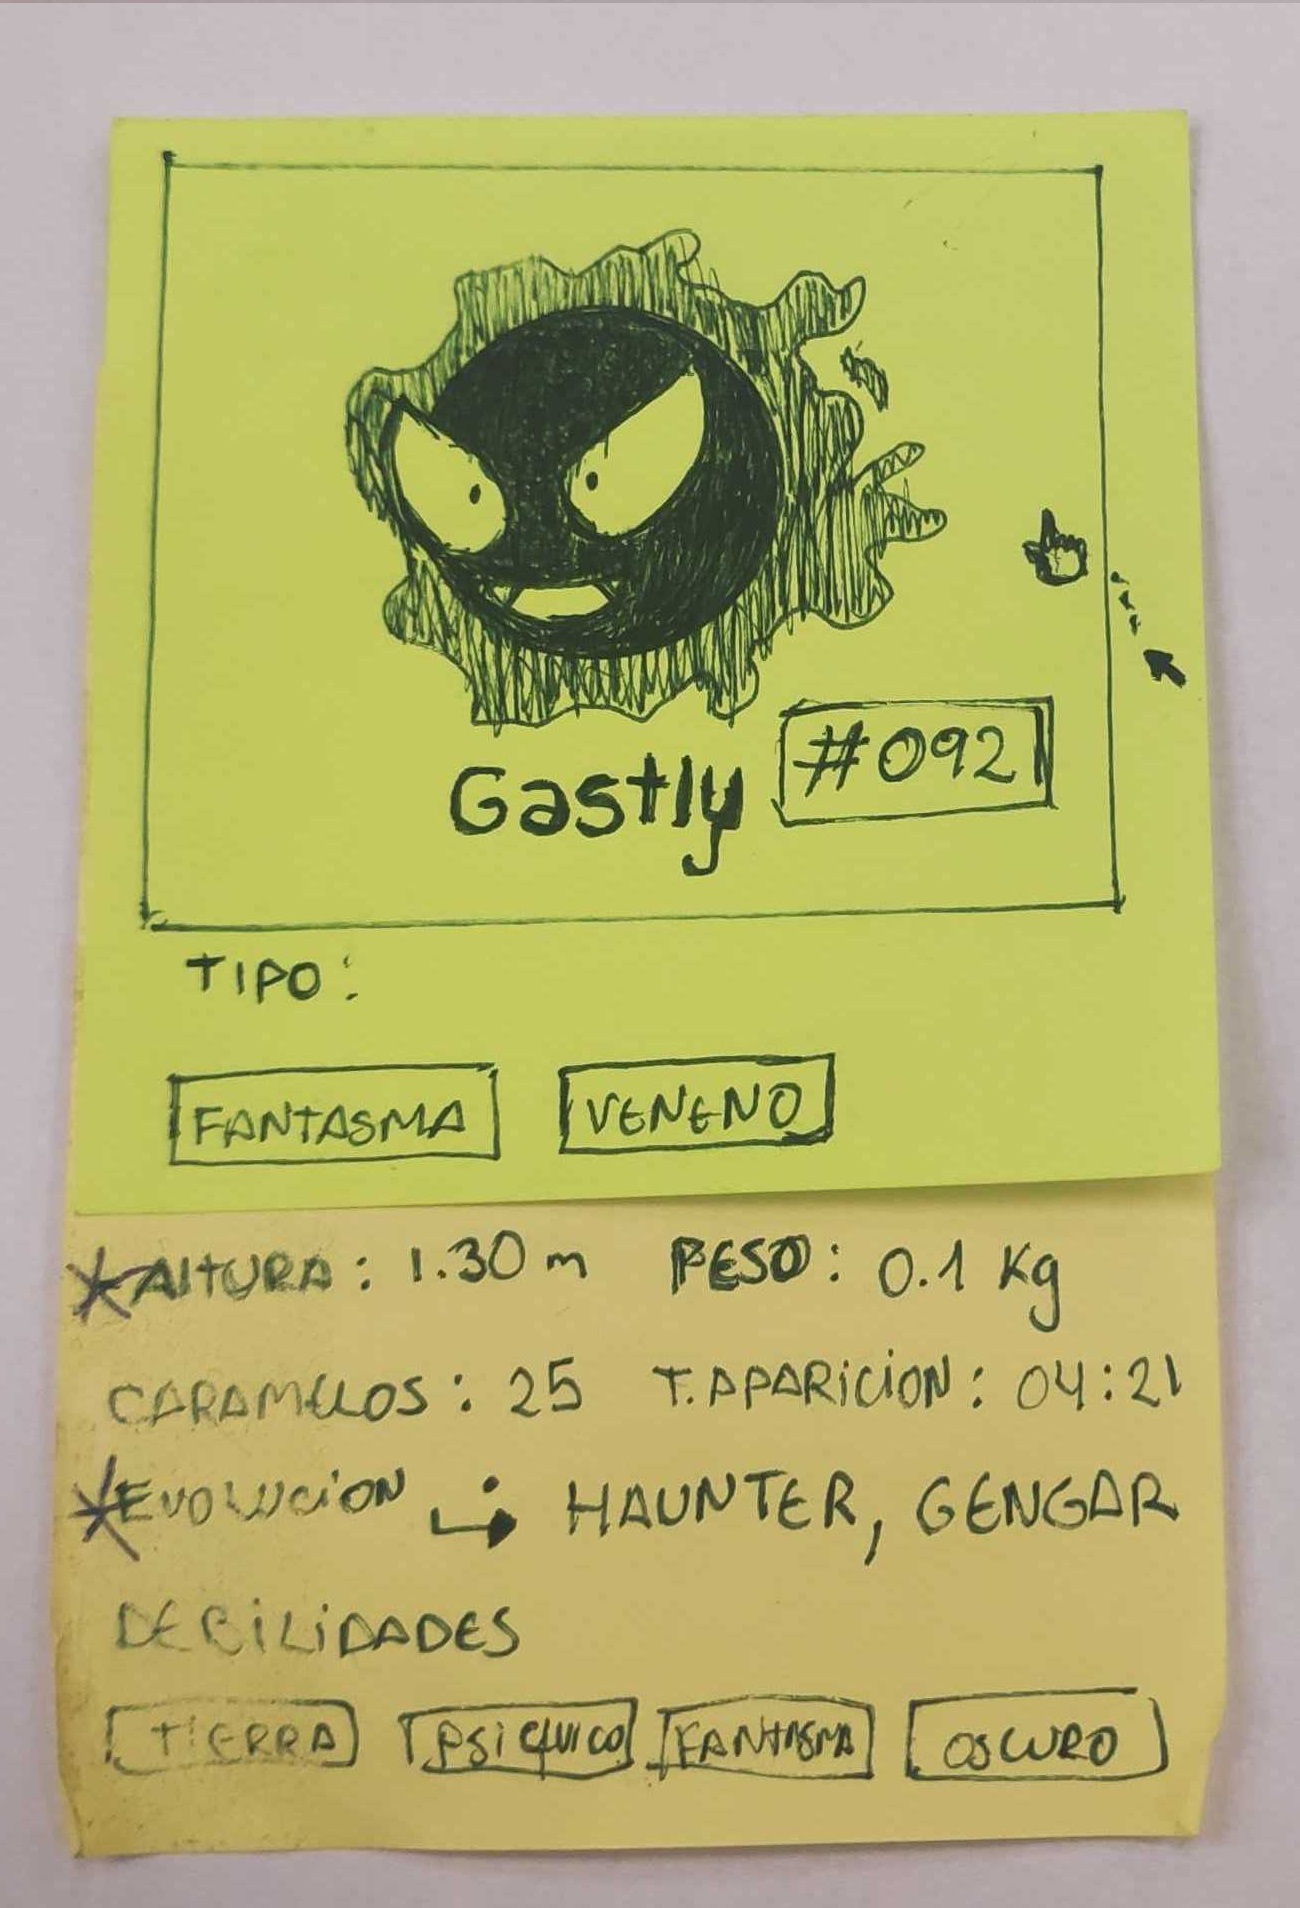 Gastly #092
TIPO:
FANTASMA VENENO
*AlTURA: 1.30 m PESO: 0.1 Kg
CARAMELOS: 25 T.APARiCiON: 04:21
*EVOLUCiON HAUNTER, GENGAR
DEBiLiDADES
TiERRA PSiQUiCO FANTASMA OSCURO